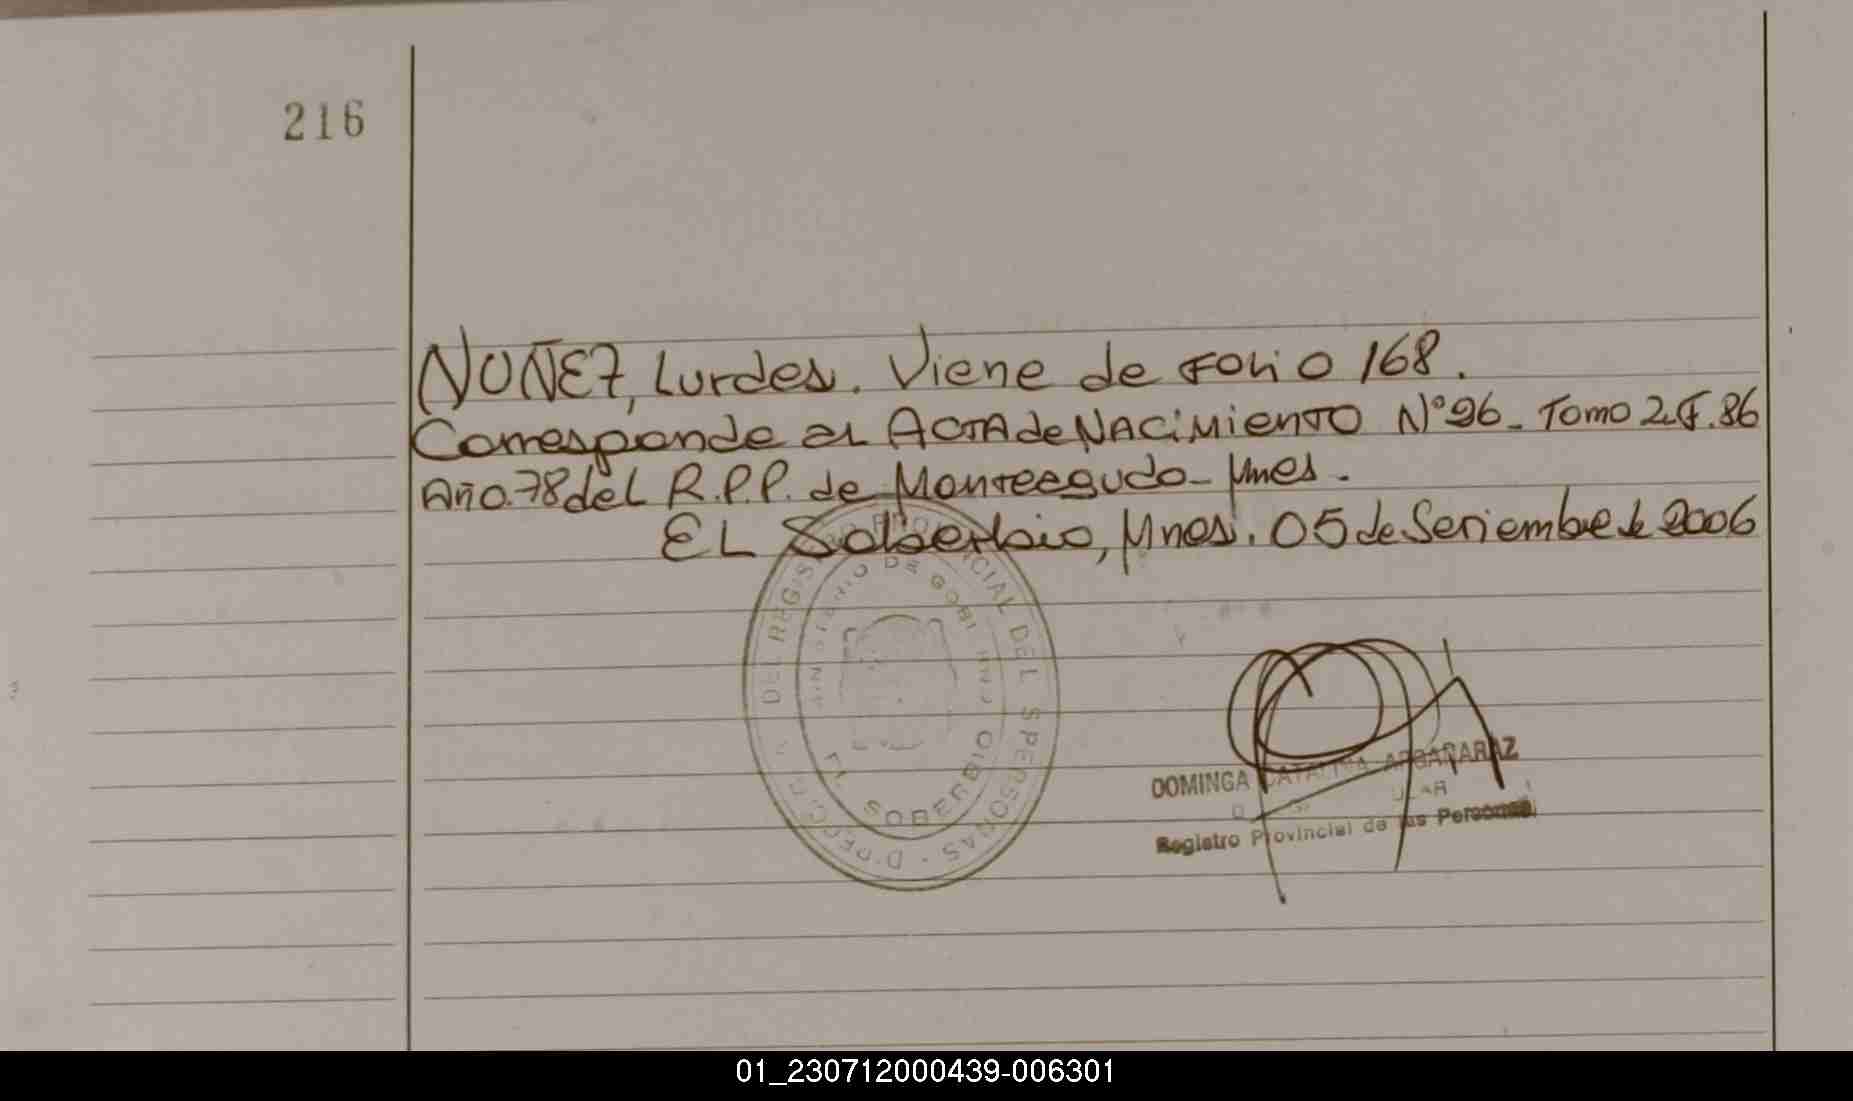 216
NUÑEZ, Lurdes. Viene de Folio 168.
Corresponde al Acta de Nacimiento N° 96 - Tomo 2 F. 86
Año. 78 del R.P.P. de Monteagudo - Mnes.
El Soberbio, Mnes. 05 de Setiembre de 2006
DEL REGISTRO PROVINCIAL DEL S PERSONAS
MINISTERIO DE GOBIERNO
EL SOBERBIO
DOMINGA CATALINA ARGAÑARAZ
Registro Provincial de las Personas
01_230712000439-006301